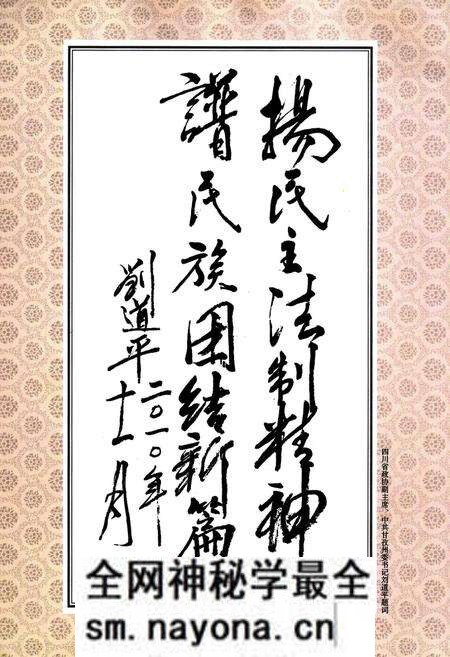 揚民主法制精神
譜民族團结新篇
劉道平
二〇一〇年
十一月
四川省政协副主席、中共甘孜州委书记刘道平题词
全网神秘学最全
sm.nayona.cn